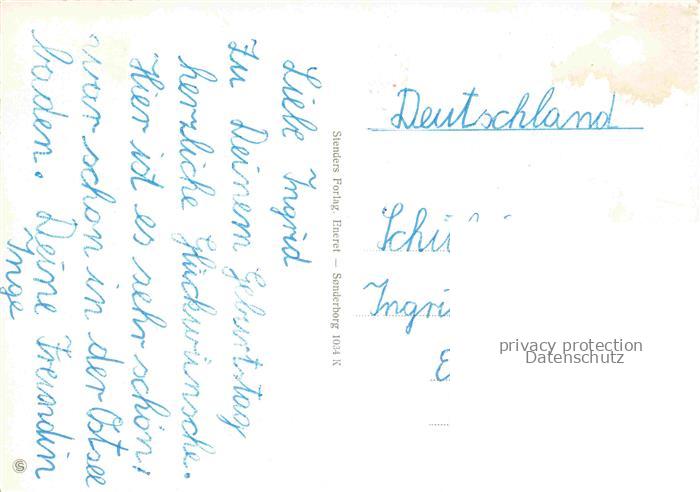 Liebe Ingrid
Zu Deinem Geburtstag
herzliche Glückwünsche.
Hier ist es sehr schön;
war schon in der Ostsee
baden. Deine Freundin
Inge
Stenders Forlag. Eneret — Sønderborg 1034 K
Deutschland
Schü
Ingri
E
privacy protection
Datenschutz